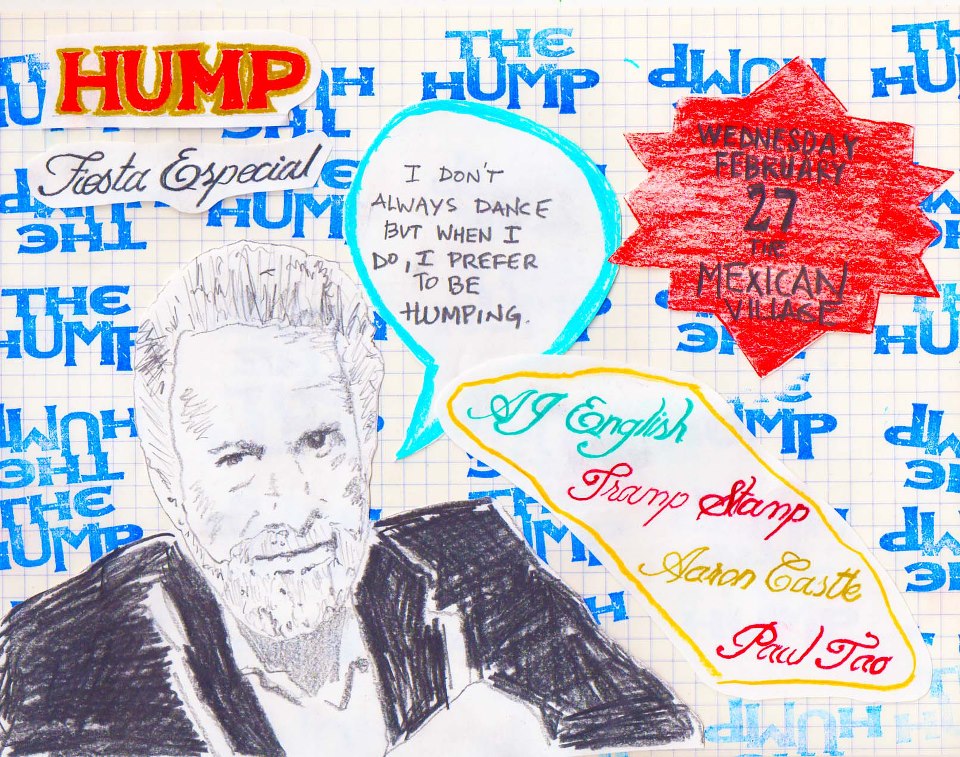 HUMP
Fiesta Especial
I DON'T
ALWAYS DANCE
BUT WHEN I
DO, I PREFER
TO BE
HUMPING.
WEDNESDAY
FEBRUARY
27
THE
MEXICAN
VILLAGE
AJ English
Tramp Stamp
Aaron Castle
Paul Tao
THE
HUMP
THE
HUMP
THE
HUMP
THE
HUMP
THE
HUMP
THE
HUMP
THE
HUMP